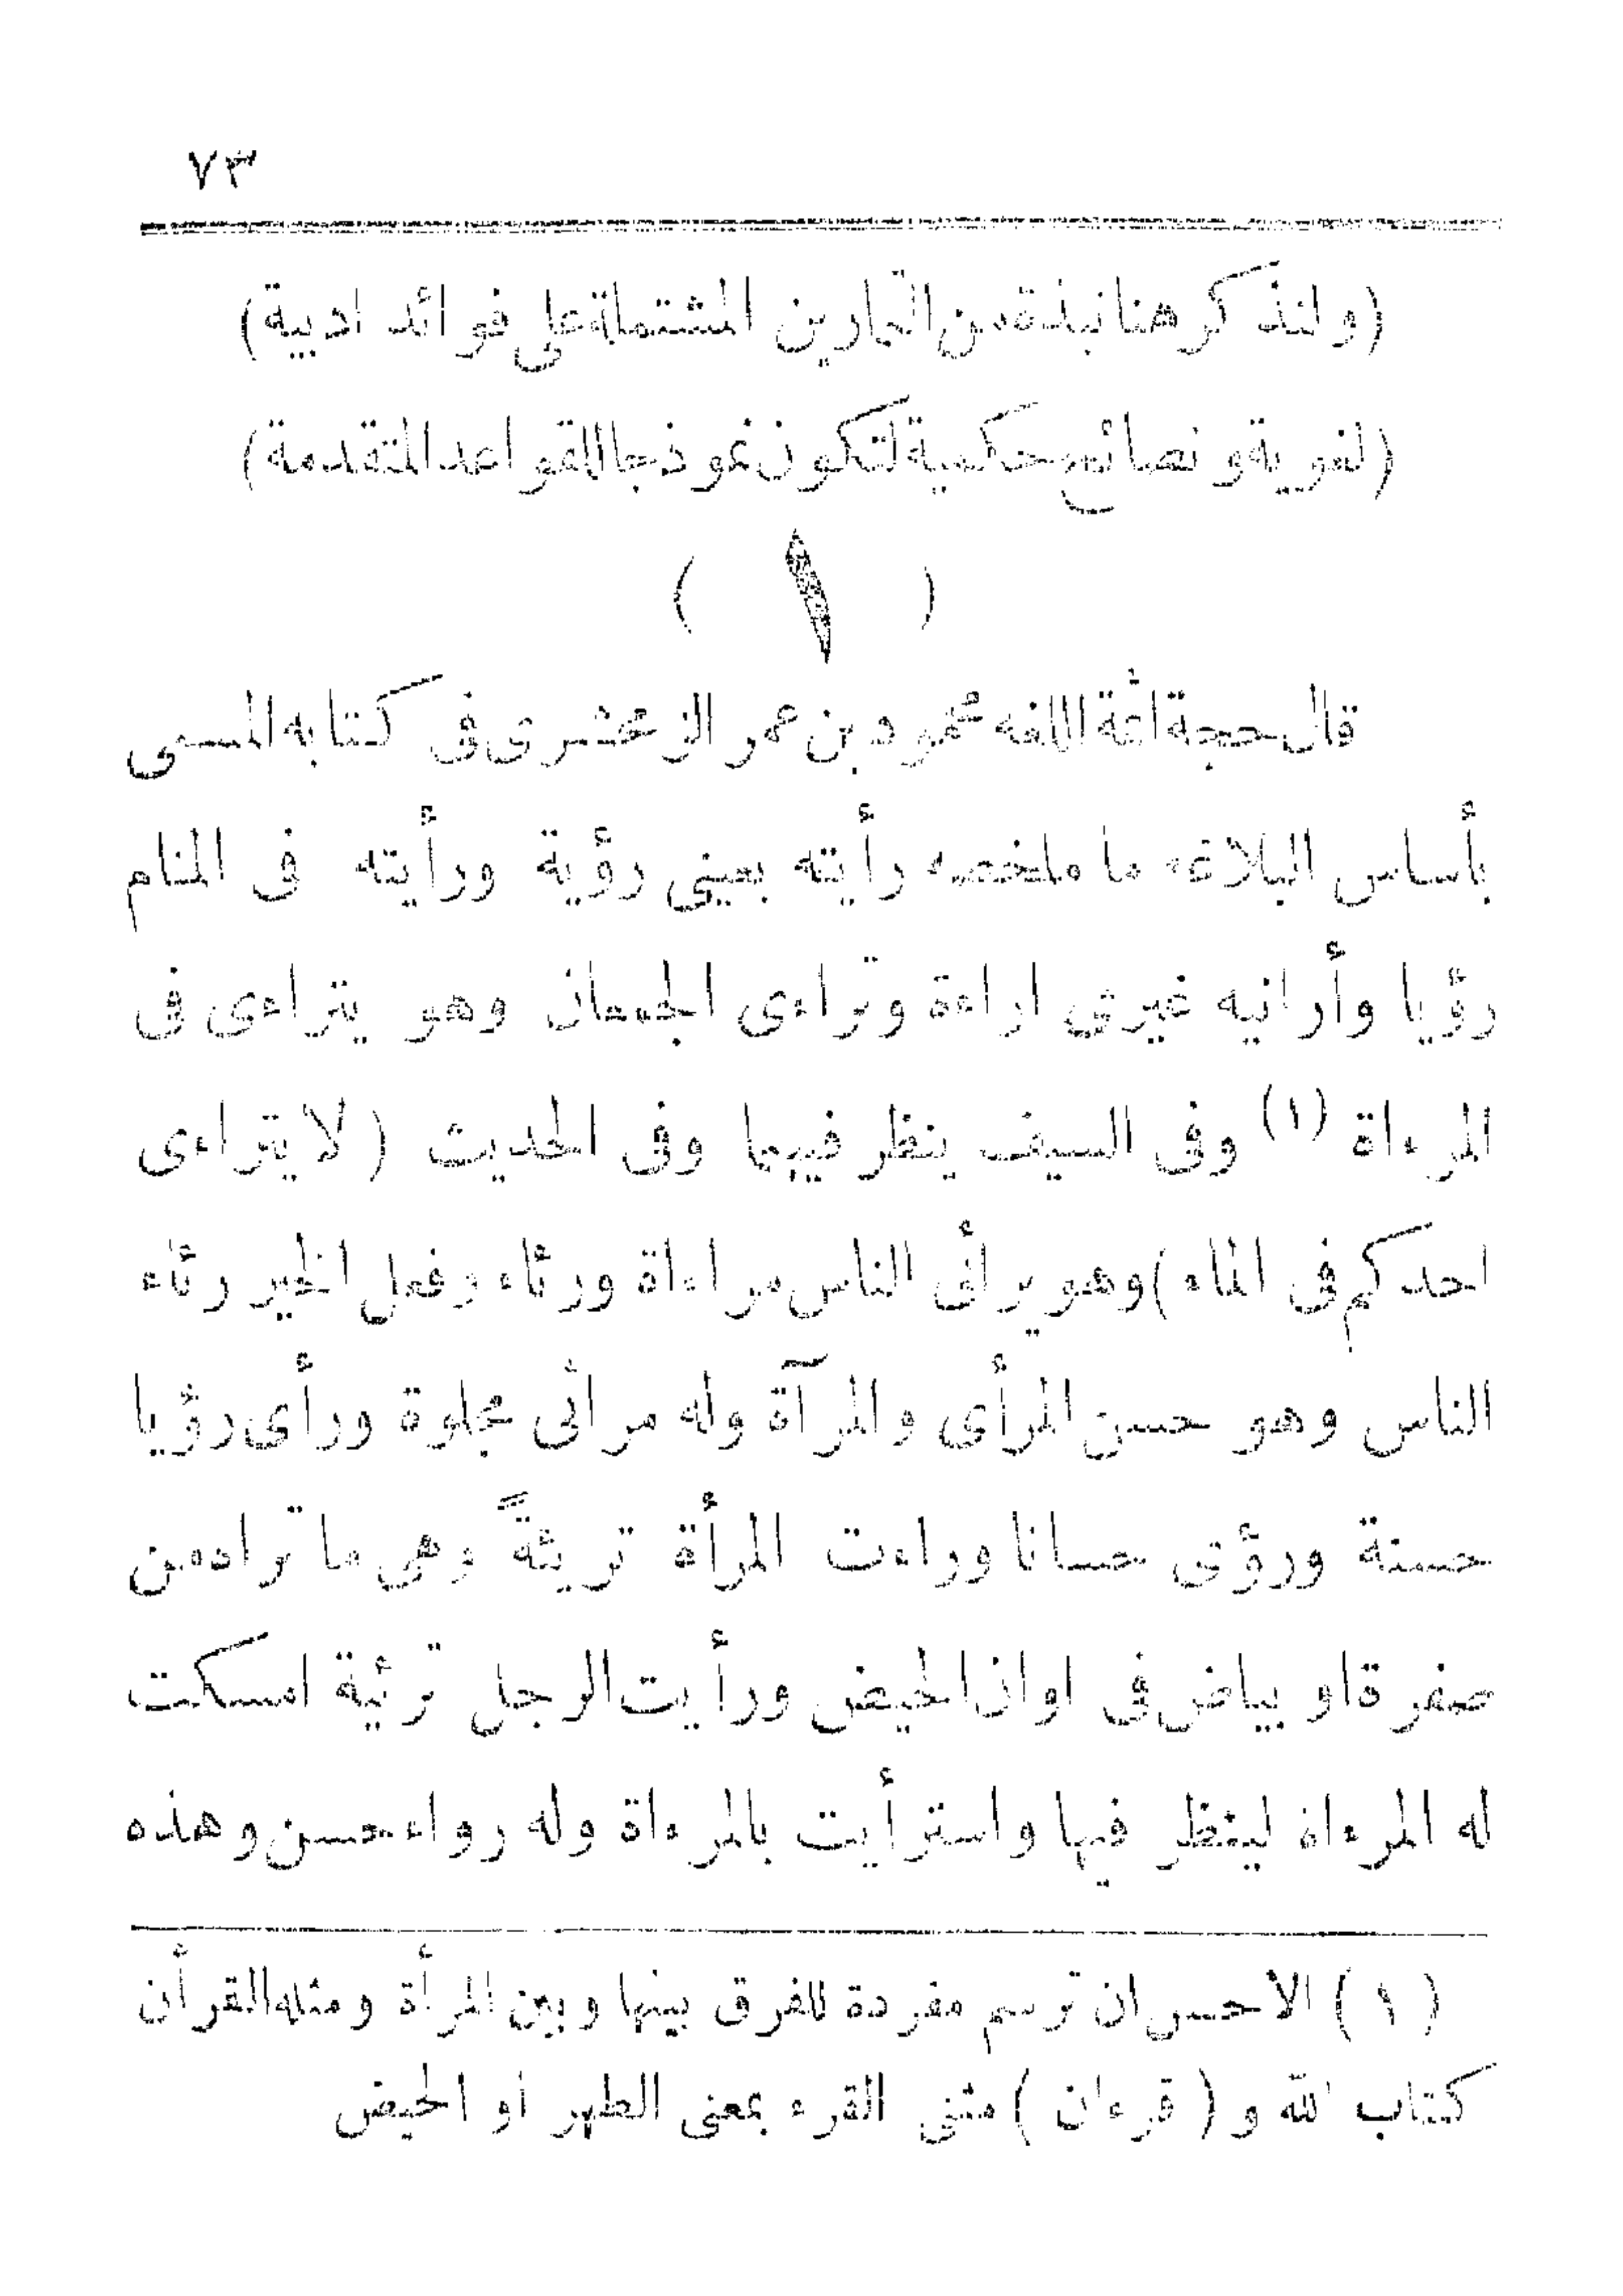 ٧٣
(ولنذكر هنا نبذة من التمارين المشتملة على فوائد ادبية)
(لغوية ونصائح حكمية لتكون نموذجا للقواعد المتقدمة)
( ١ )
قال حجة ائمة اللغه محمود بن عمر الزمخشرى فى كتابه المسمى
بأساس البلاغه ما ملخصه رأيته بعينى رؤية ورأيته فى المنام
رؤيا وأرانيه غيرى اراءة وتراءى الجمعان وهو يتراءى فى
المرءاة (١) وفى السيف ينظر فيهما وفى الحديث (لا يتراءى
احدكم فى الماء) وهو يرائى الناس مراءاة ورئاء وفعل الخير رئاء
الناس وهو حسن المرأى والمرآة وله مرائى مجلوة ورأى رؤيا
حسنة ورؤى حسانا وراءت المرأة تريئةً وهى ما تراه من
صفرة او بياض فى اوان الحيض ورأيت الرجل ترئية امسكت
له المرءاة لينظر فيها واسترأيت بالمرءاة وله رواء حسن وهذه
(١) الاحسن ان ترسم مفردة للفرق بينها وبين المرأة ومثله القرأن
كتاب الله و (قرءان) مثنى القرء بمعنى الطهر او الحيض